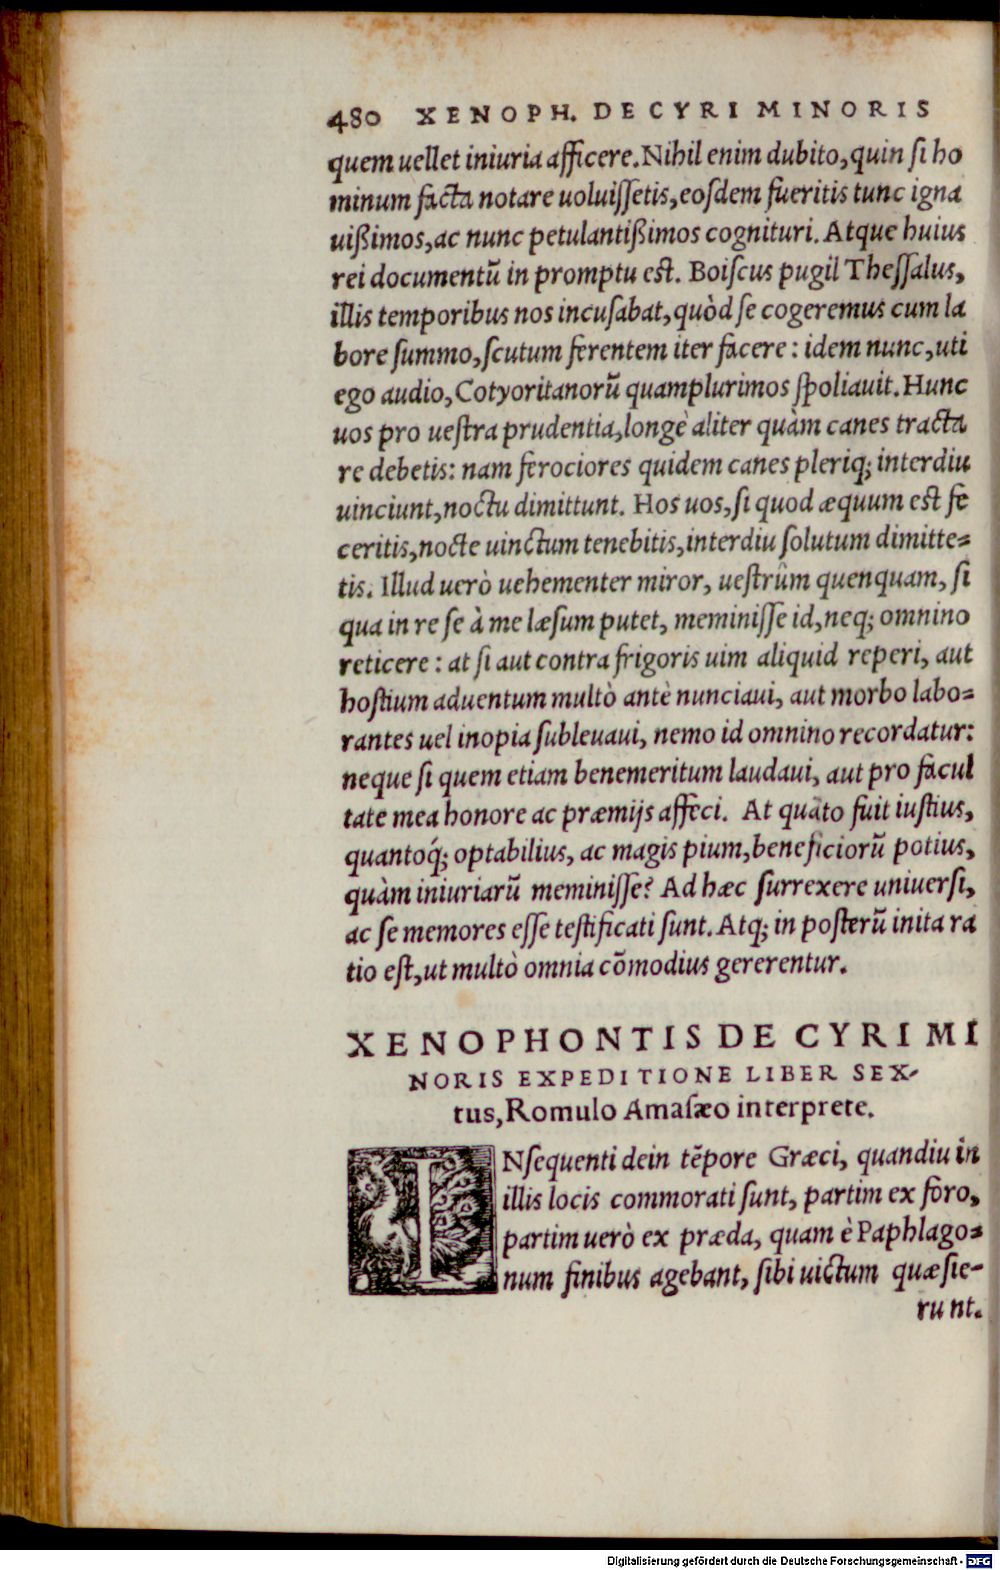 480 XENOPH. DE CYRI MINORIS
quem uellet iniuria afficere. Nihil enim dubito, quin si ho
minum facta notare uoluissetis, eosdem fueritis tunc igna
uißimos, ac nunc petulantißimos cognituri. Atque huius
rei documentū in promptu est. Boiscus pugil Thessalus,
illis temporibus nos incusabat, quòd se cogeremus cum la
bore summo, scutum ferentem iter facere: idem nunc, uti
ego audio, Cotyoritanorū quamplurimos spoliauit. Hunc
uos pro uestra prudentia, longè aliter quàm canes tracta
re debetis: nam ferociores quidem canes pleriq; interdiu
uinciunt, noctu dimittunt. Hos uos, si quod æquum est fe
ceritis, nocte uinctum tenebitis, interdiu solutum dimitte=
tis. Illud uerò uehementer miror, uestrûm quenquam, si
qua in re se à me læsum putet, meminisse id, neq; omnino
reticere: at si aut contra frigoris uim aliquid reperi, aut
hostium aduentum multò antè nunciaui, aut morbo labo=
rantes uel inopia subleuaui, nemo id omnino recordatur:
neque si quem etiam benemeritum laudaui, aut pro facul
tate mea honore ac præmijs affeci. At quāto fuit iustius,
quantoq́; optabilius, ac magis pium, beneficiorū potius,
quàm iniuriarū meminisse? Ad hæc surrexere uniuersi,
ac se memores esse testificati sunt. Atq; in posterū inita ra
tio est, ut multò omnia cōmodius gererentur.
XENOPHONTIS DE CYRI MI
NORIS EXPEDITIONE LIBER SEX-
tus, Romulo Amasæo interprete.
INsequenti dein tēpore Græci, quandiu in
illis locis commorati sunt, partim ex foro,
partim uerò ex præda, quam è Paphlago=
num finibus agebant, sibi uictum quæsie-
runt.
Digitalisierung gefördert durch die Deutsche Forschungsgemeinschaft - DFG